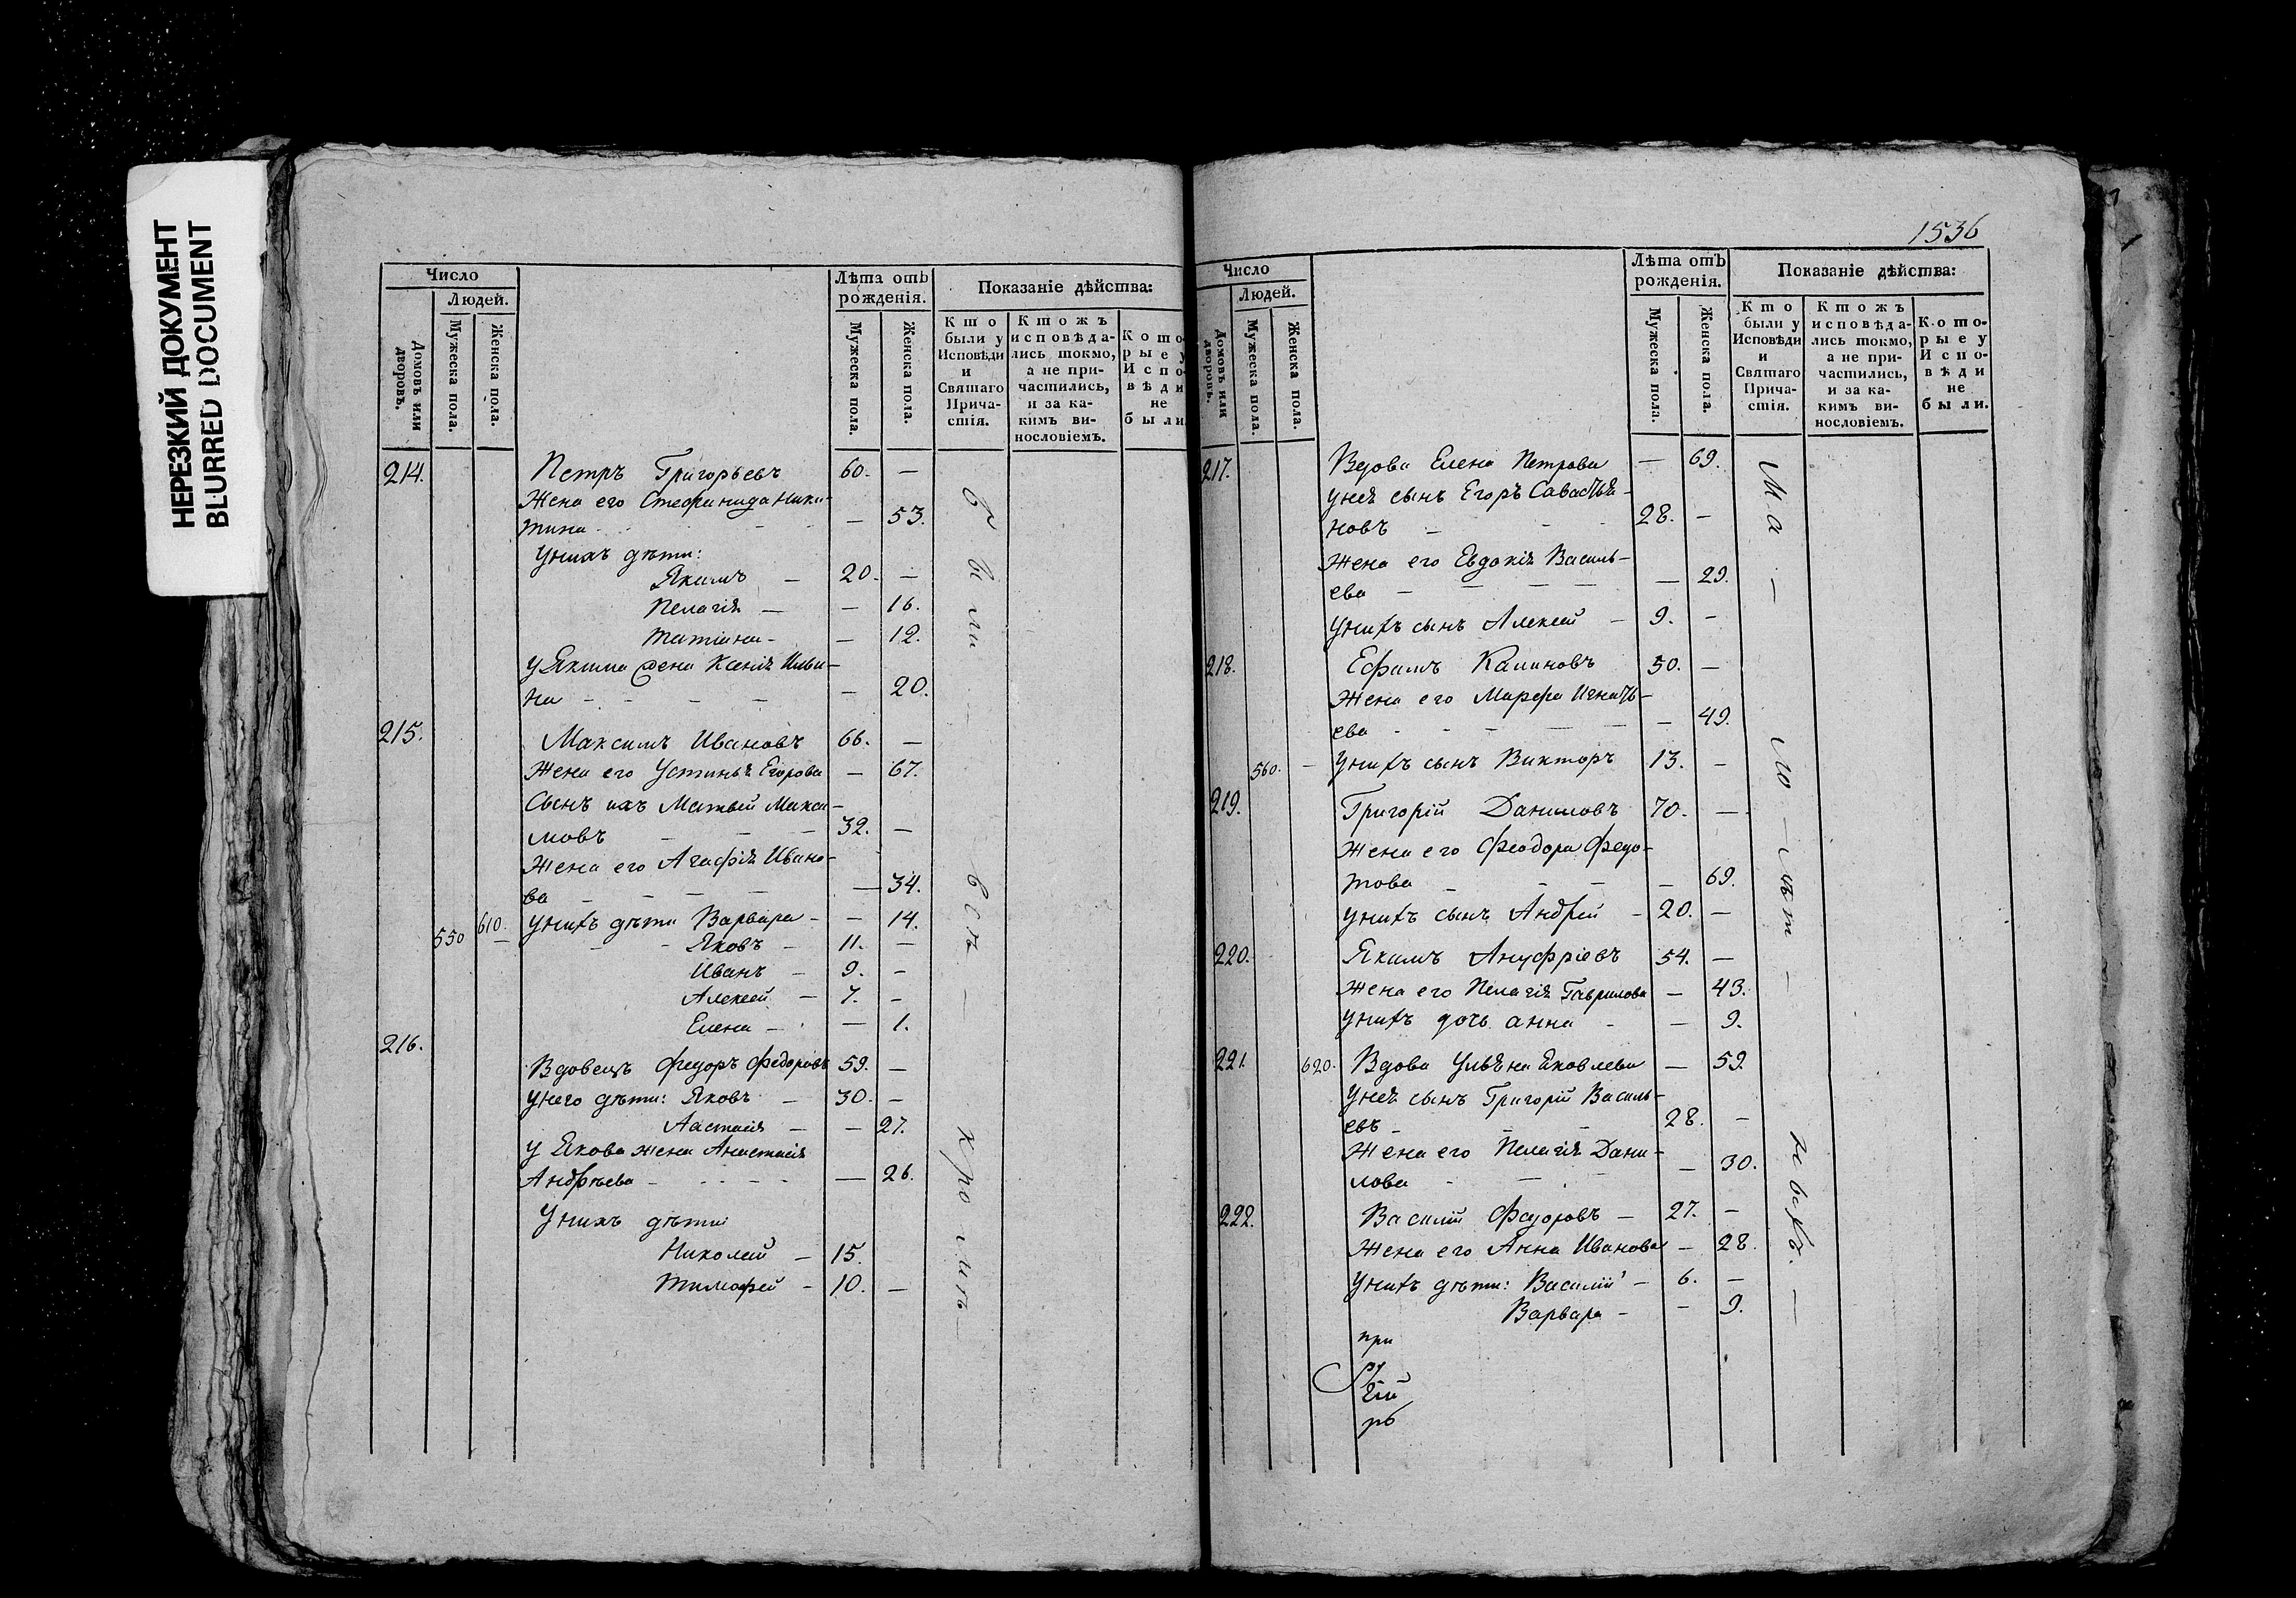 НЕРЕЗКИЙ ДОКУМЕНТ
BLURRED DOCUMENT
Число
Людей.
Домовъ или дворовъ.
Мужеска пола.
Женска пола.
Лѣта отъ рожденія.
Мужеска пола.
Женска пола.
Показаніе дѣйства:
Кто были у Исповѣди и Святаго Причастія.
Ктожъ исповѣдались токмо, а не причастились, и за какимъ винословіемъ.
Кото рые у Испо вѣди не были
214. Петръ Григорьевъ 60. —
Жена его Стефанида Ники-
тина — 53.
Унихъ дѣти:
Якимъ — 20. —
Пелагія — — 16.
Татіана - — 12.
У Якима жена Ксенія Ильи-
на - - — — — 20.
215. Максимъ Ивановъ 66. —
Жена его Устинья Егорова — 67.
Сынъ ихъ Матвей Макси-
мовъ — — — 32. —
Жена его Агафія Ивано-
ва — — — — — 34.
550 610. Унихъ дѣти Варвара - — 14.
Яковъ - 11. —
Иванъ - 9. -
Алексей — 7. -
Елена - — 1.
216.
Вдовецъ Федоръ Федоровъ 59. —
Унего дѣти: Яковъ - 30. -
Аастасія — — 27.
У Якова жена Анастасія
Андрѣева - - - - - — 26.
Унихъ дѣти
Николай - 15.
Тимофей - 10. —
были всѣ кромѣ
1536
Число
Людей.
Домовъ или дворовъ.
Мужеска пола.
Женска пола.
Лѣта отъ рожденія.
Мужеска пола.
Женска пола.
Показаніе дѣйства:
Кто были у Исповѣди и Святаго Причастія.
Ктожъ исповѣдались токмо, а не причастились, и за какимъ винословіемъ.
Которые у Исповѣди не были.
217. Вдова Елена Петрова — 69.
Унея сынъ Егоръ Савастья-
новъ — - 28. -
Жена его Евдокія Василь-
ева — — — — — 29.
Унихъ сынъ Алексей - 9. -
218. Ефимъ Калиновъ 50. —
Жена его Марфа Игнать-
ева - - - — — — 49.
560. - Унихъ сынъ Викторъ 13. -
219. Григорій Даниловъ 70. —
Жена его Феодора Федо-
това - - — — 69.
Унихъ сынъ Андрей - 20. —
220. Якимъ Ануфріевъ 54. —
Жена его Пелагія Гаврилова — 43.
Унихъ дочь анна - — 9.
221. 620. Вдова Ульяна Яковлева — 59.
Унея сынъ Григорій Василь-
евъ - - - 28. -
Жена его Пелагія Дани-
лова - — — 30.
222. Василій Федоровъ — 27. -
Жена его Анна Иванова — 28.
Унихъ дѣти: Василій - 6. —
Варвара - - 9.
при
ма - ло - лѣт - нвхъ. —